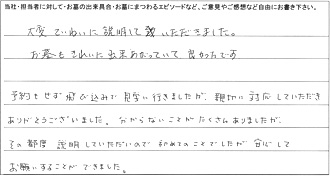 当社・担当者に対して・お墓の出来具合・お墓にまつわるエピソードなど、ご意見やご感想など自由にお書き下さい。
大変ていねいに説明していただきました。
お墓もきれいに出来あがっていて良かったです
予約もせず飛び込みで見学に行きましたが、親切に対応していただき
ありがとうございました。わからないことがたくさんありましたが、
その都度説明していただいので初めてのことでしたが安心して
お願いすることができました。